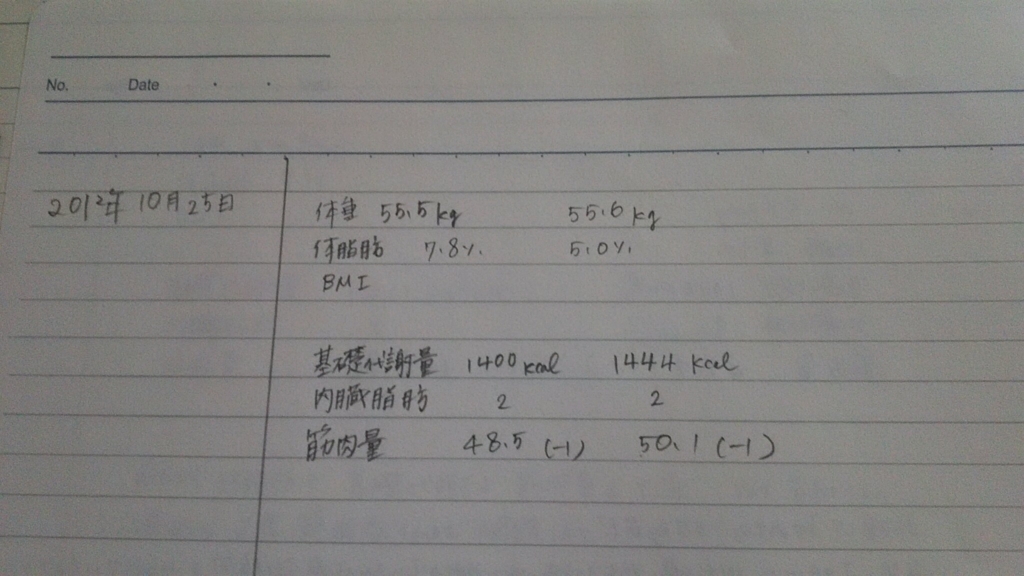 No. Date ・ ・
2012年10月25日
体重 55.5kg 55.6kg
体脂肪 7.8% 5.0%
BMI
基礎代謝量 1400kcal 1444kcal
内臓脂肪 2 2
筋肉量 48.5 (-1) 50.1 (-1)